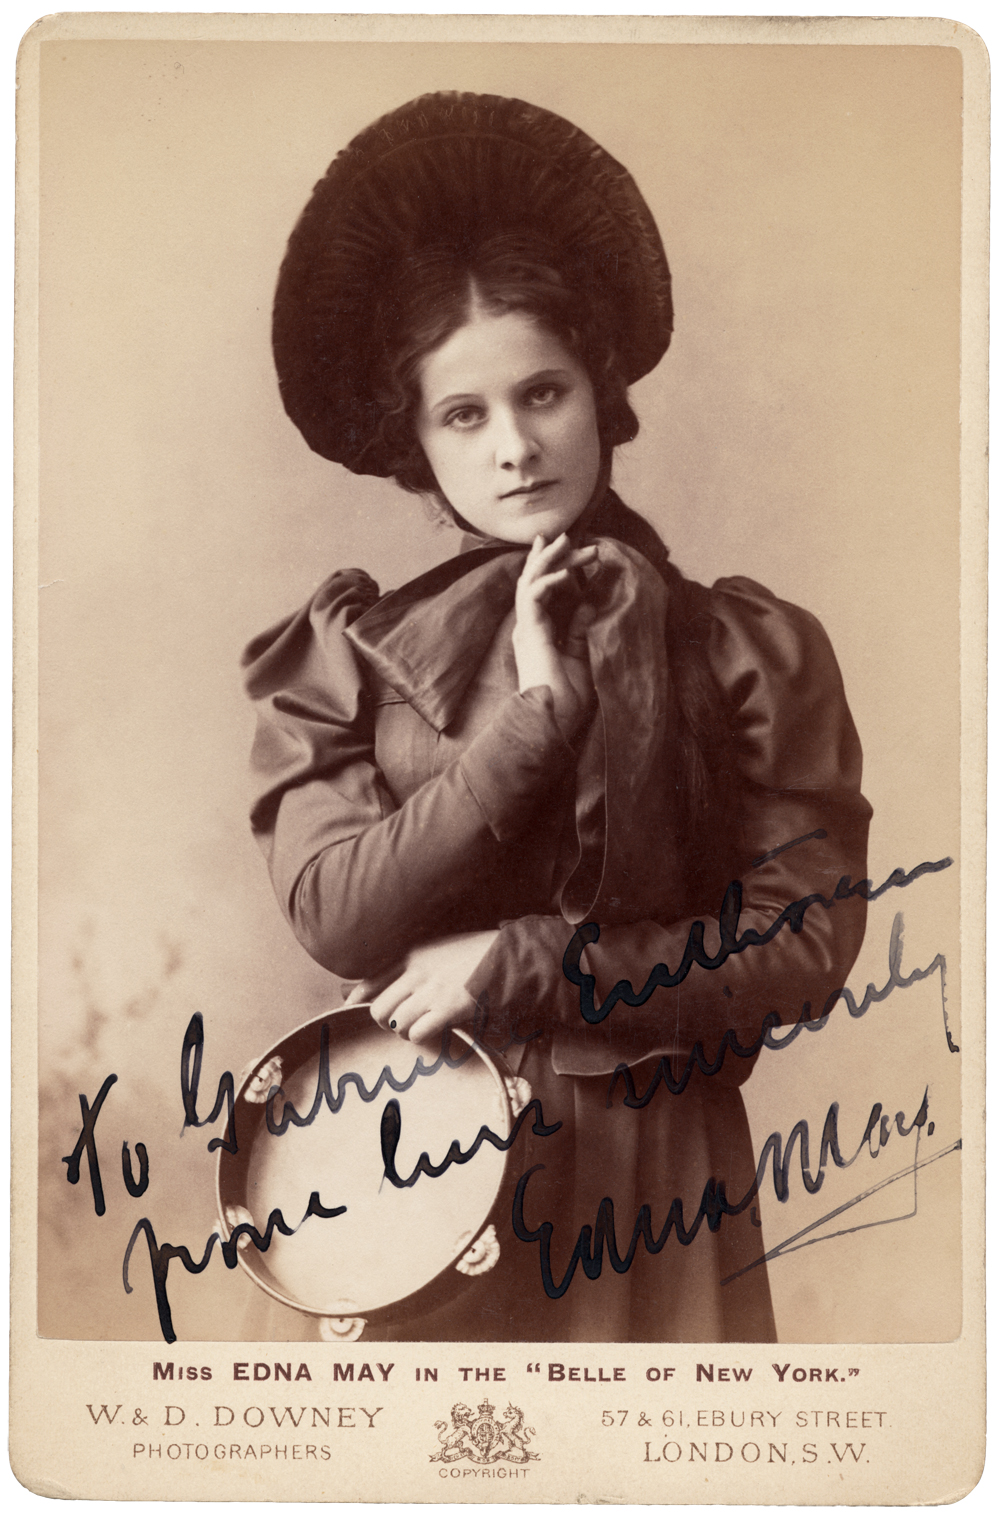 To Gabrielle Enthoven
from hers sincerely
Edna May.
MISS EDNA MAY IN THE "BELLE OF NEW YORK."
W. & D. DOWNEY
PHOTOGRAPHERS
COPYRIGHT
57 & 61, EBURY STREET.
LONDON, S.W.